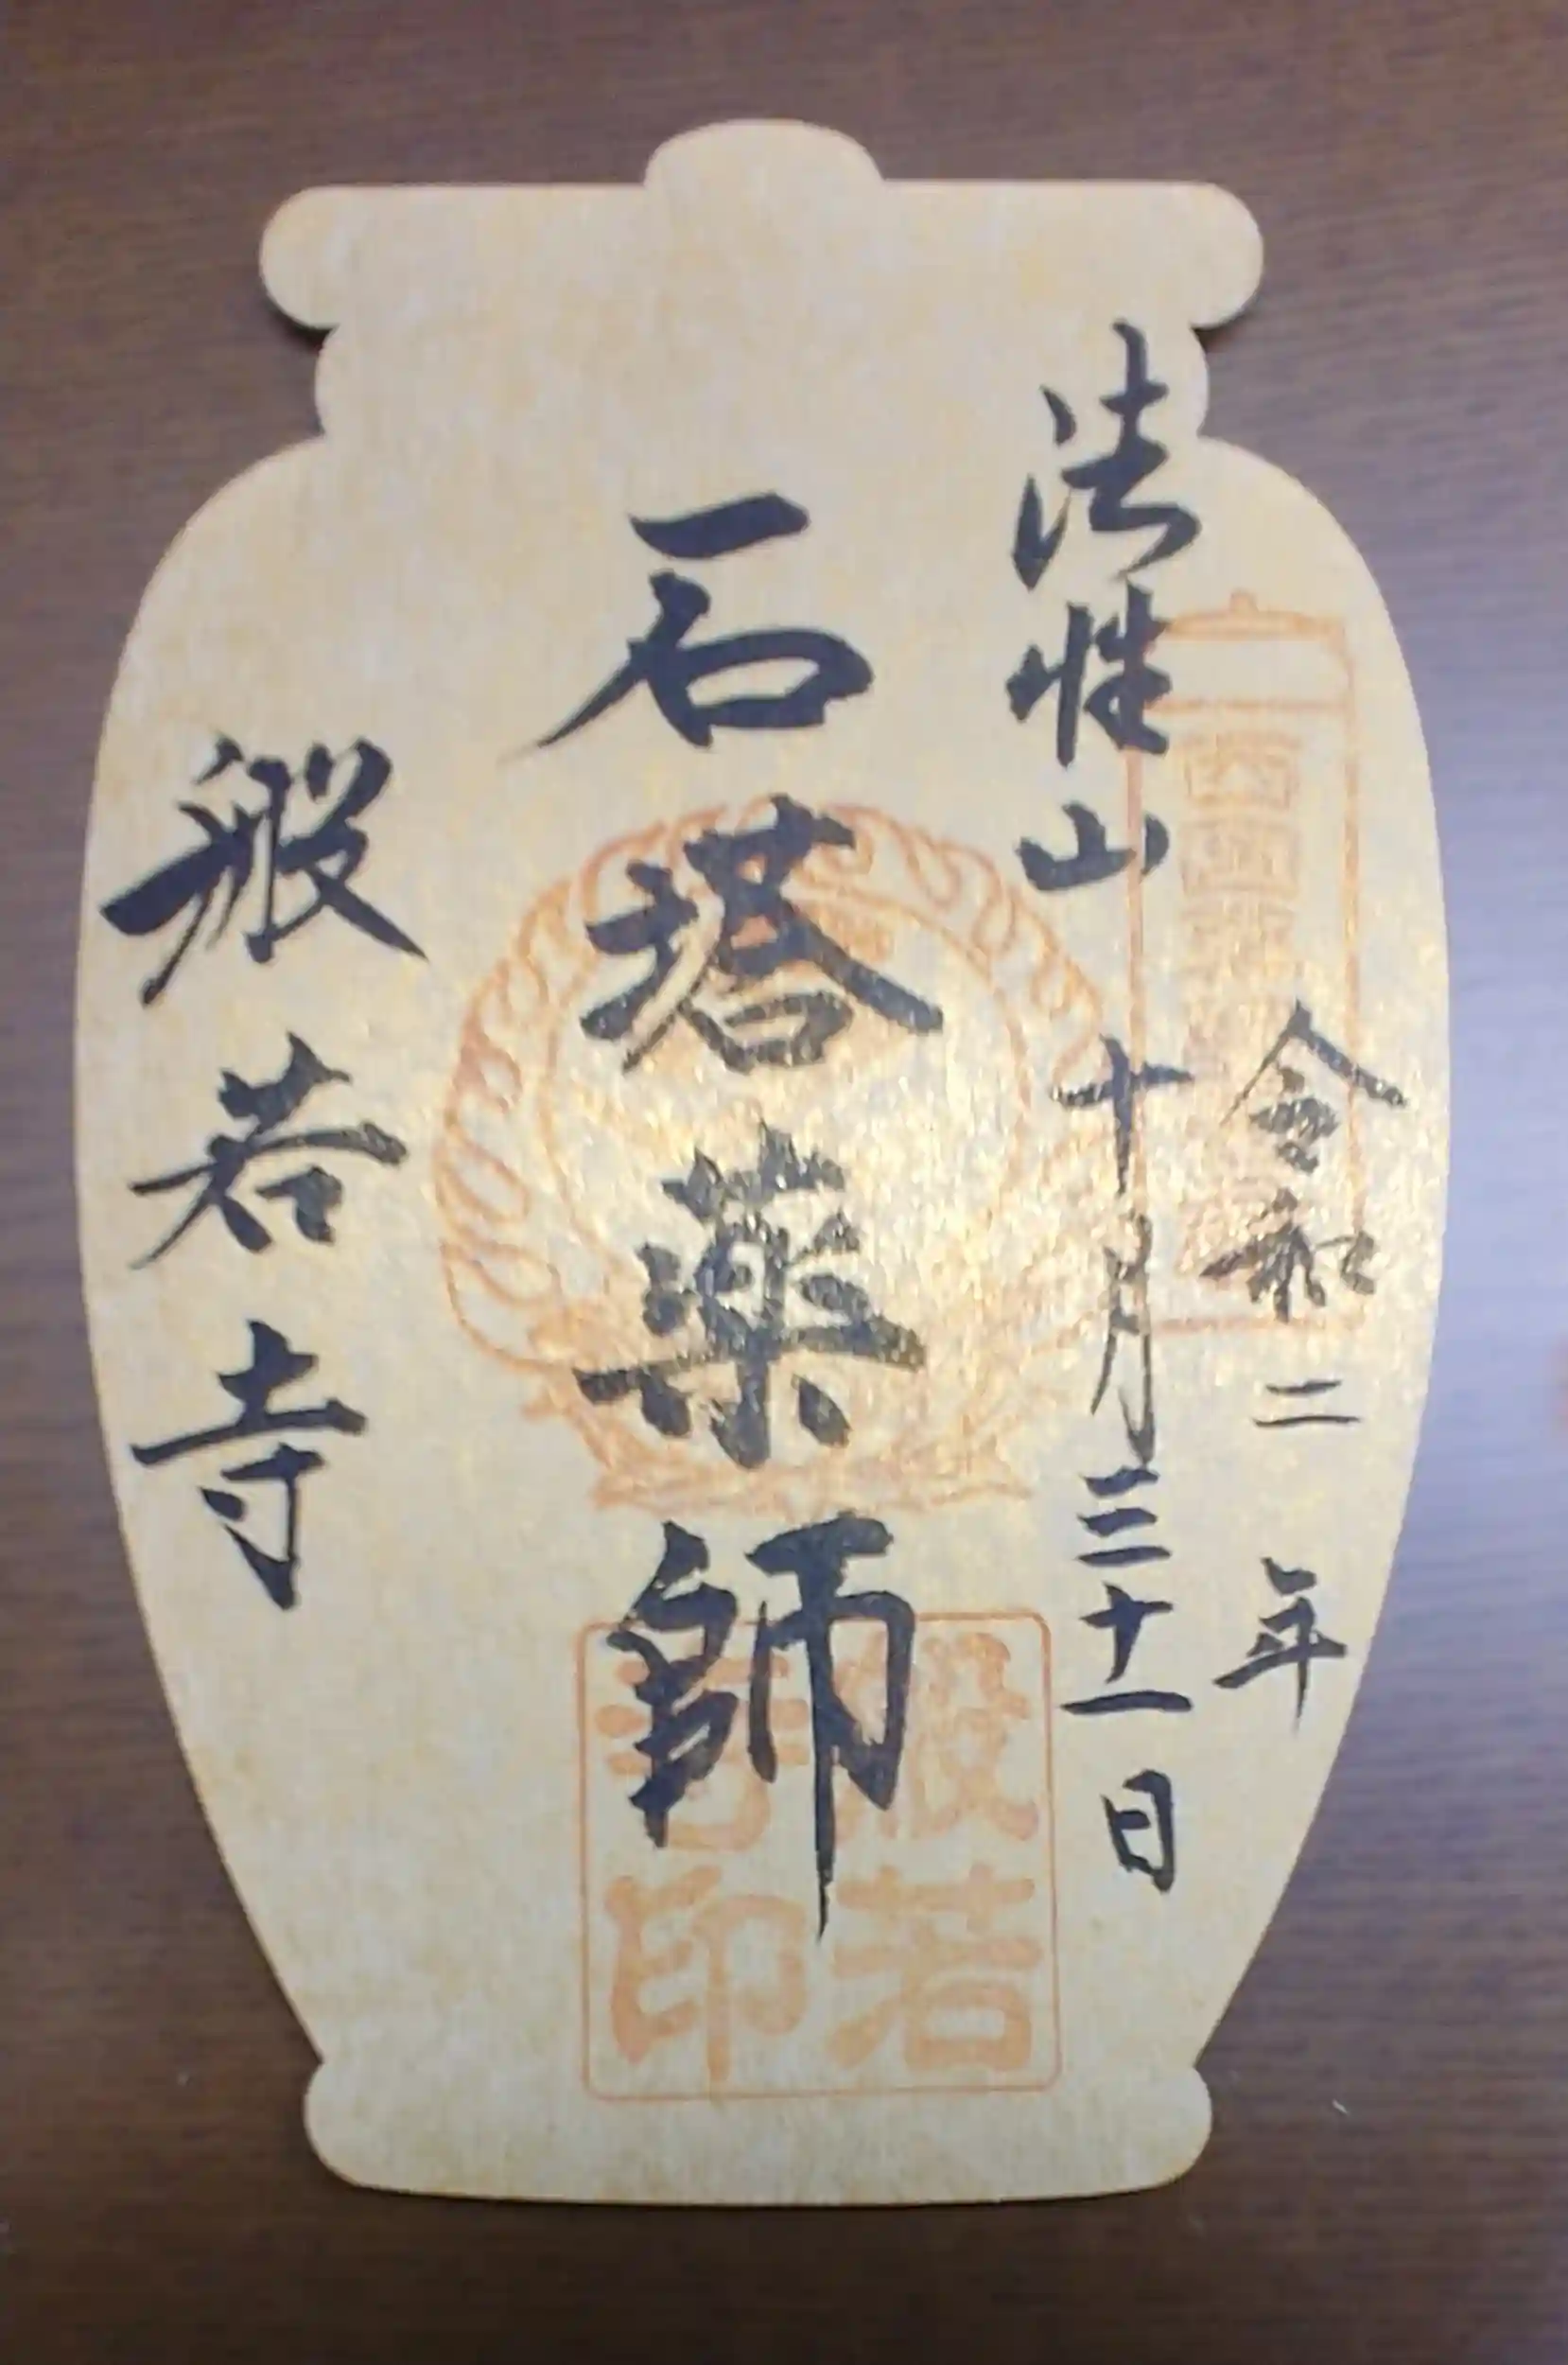 令和二年
十月三十一日
法性山
石塔薬師
般若寺
般若
寺印